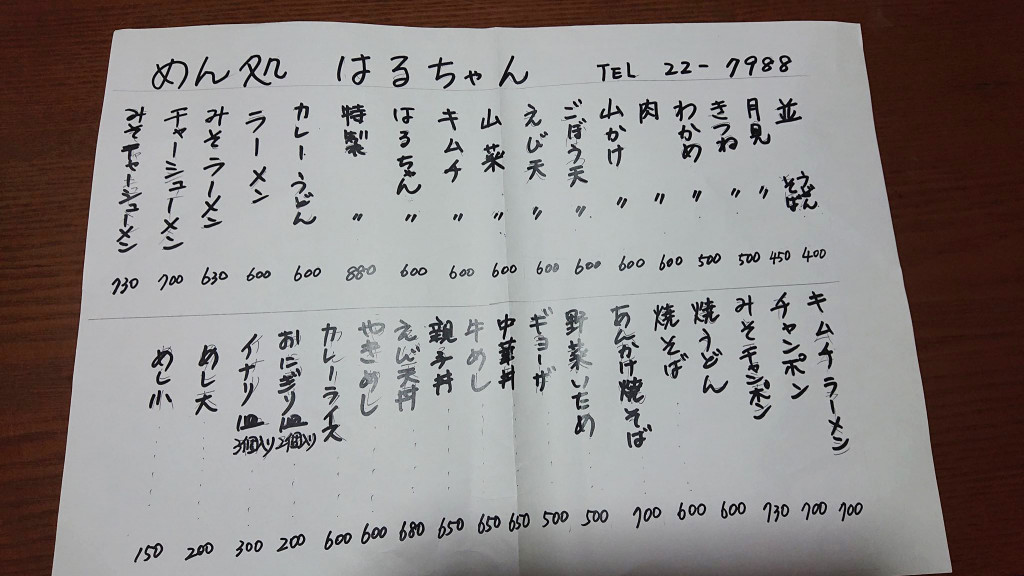 めん処 はるちゃん TEL 22-7988
並 うどん そば 400
月見 〃 450
きつね 〃 500
わかめ 〃 500
肉 〃 600
山かけ 〃 600
ごぼう天 〃 600
えび天 〃 600
山菜 〃 600
キムチ 〃 600
はるちゃん 〃 600
特製 〃 880
カレーうどん 600
ラーメン 600
みそラーメン 630
チャーシューメン 700
みそチャーシューメン 730
キムチラーメン 700
チャンポン 700
みそチャンポン 730
焼うどん 600
焼そば 600
あんかけ焼そば 700
野菜いため 500
ギョーザ 500
中華丼 650
牛めし 650
親子丼 650
えび天丼 680
やきめし 600
カレーライス 600
おにぎり 一皿 2個入り 200
イナリ 一皿 3個入り 300
めし大 200
めし小 150